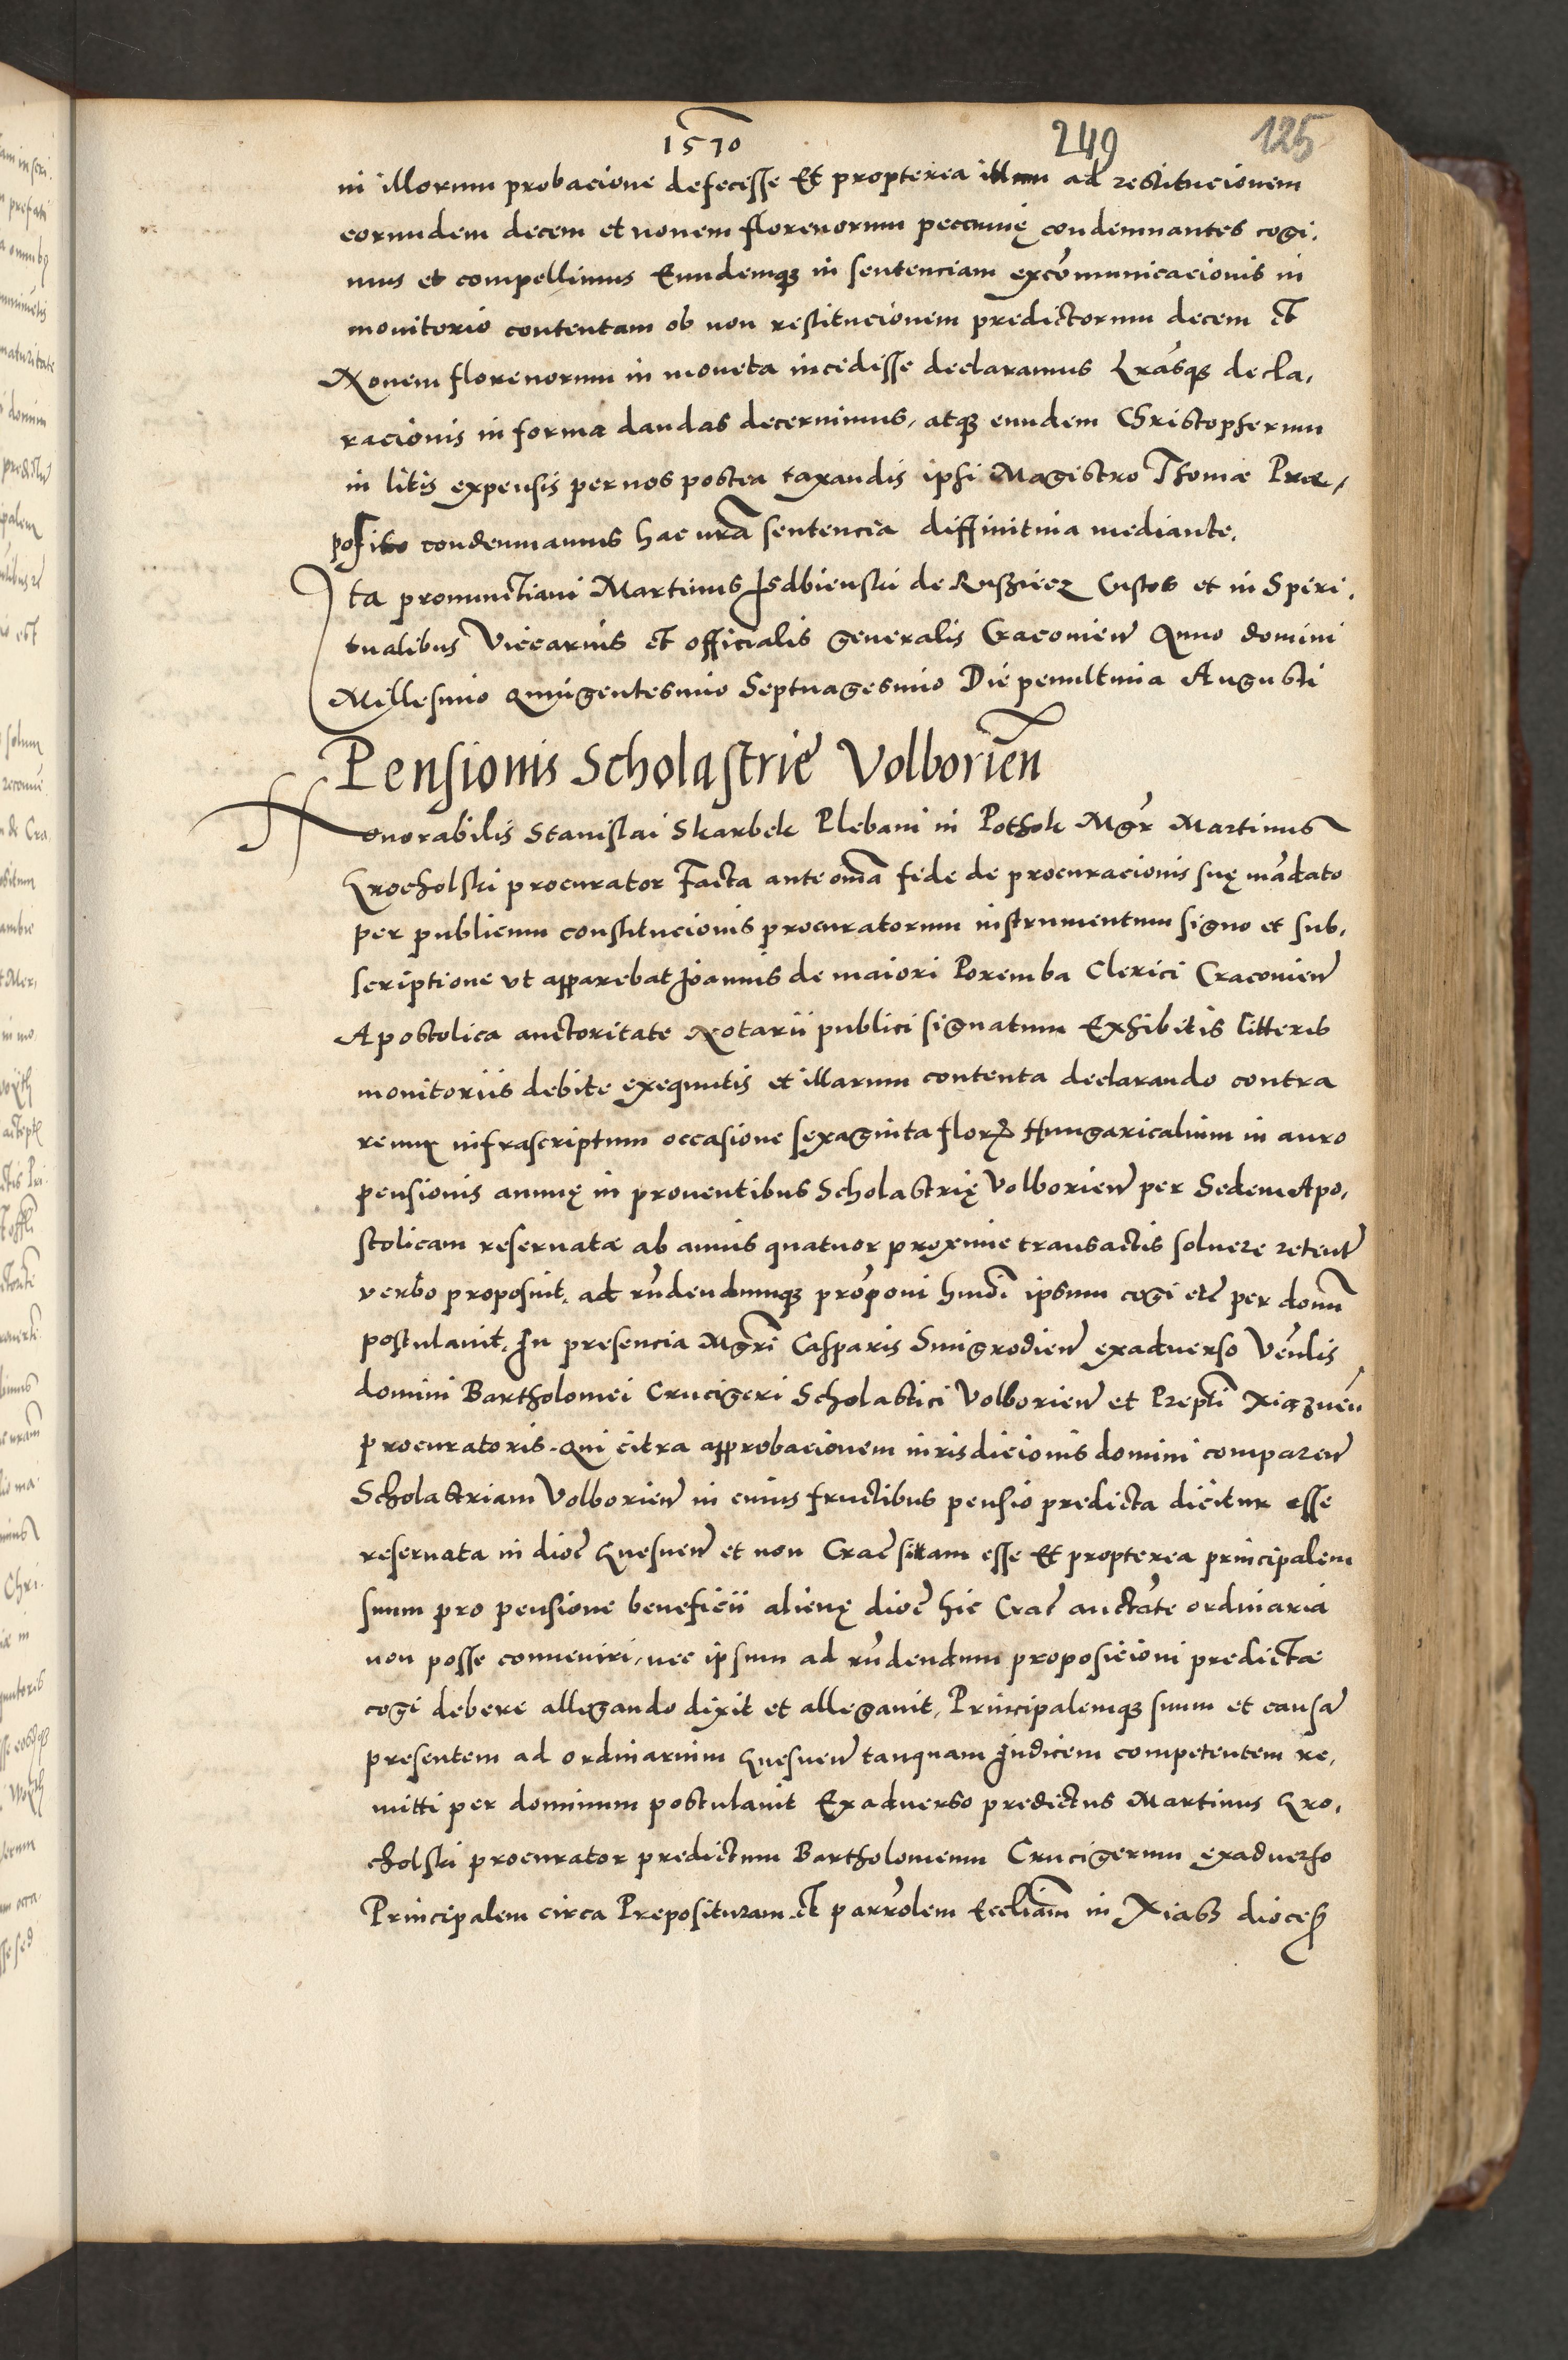 1570 249 125
in illorum probacione defecisse Et propterea illum ad restitucionem
eorundem decem et nonem florenorum peccunię condemnantes cogi,
mus et compellimus Eundemq3 in sentenciam excōmunicacionis in
monitorio contentam ob non restitucionem predictorum decem et
Nonem florenorum in moneta incidisse declaramus Lrāsq3 decla,
racionis in forma dandas decernimus, atq3 eundem Christopherum
in litis expensis per nos postea taxandis ipsi Magistro Thomæ Præ,
posito condemnamus hac nrā sentencia diffinitiua mediante.
Ita pronunctiaui Martinus Isdbienski de Rusziecz Custos et in Speri,
tualibus Viccarius et officialis generalis Cracouien̄ Anno domini
Millesimo quingentesimo Septuagesimo Die penultima Augusti
Pensionis Scholastrię Volborien̄
Honorabilis Stanislai Skarbek Plebani in Pothok Mgr̄ Martinus
Krocholski procurator Facta ante om̄a fide de procuracionis suę mādato
per publicum constitucionis procuratorum instrumentum signo et sub,
scriptione vt apparebat Joannis de maiori Poremba Clerici Cracouien̄
Apostolica auctoritate Notarii publici signatum Exhibitis litteris
monitoriis debite exequutis et illarum contenta declarando contra
reum infrascriptum occasione sexaginta flor̄ Hungaricalium in auro
pensionis annuę in prouentibus Scholastrię Volborien̄ per Sedem Apo,
stolicam reseruatæ ab annis quatuor proxime transactis soluere retent̄
verbo proposuit, ad rn̄dendumq3 prōponi hmōi ipsum cogi etc̄ per dom̄
postulauit. In presencia Mgrī Casparis Smigrodien̄ exaduerso Ven̄lis
domini Bartholomei Crucigeri Scholastici Volborien̄ et Prepti Xiąznen̄
procuratoris. Qui citra approbacionem iurisdicionis domini comparen̄
Scholastriam Volborien̄ in cuius fructibus pensio predicta dicitur esse
reseruata in dioc̄ Gnesnen̄ et non Crac̄ sittam esse Et propterea principalem
suum pro pensione beneficii alienę dioc̄ hic Crac̄ auctāte ordinaria
non posse conueniri, nec ipsum ad rn̄dendum proposicioni predictæ
cogi debere allegando dixit et allegauit, Principalemq3 suum et causā
presentem ad ordinarium Gnesnen̄ tanquam Judicem competentem re,
mitti per dominum postulauit Exaduerso predictus Martinus Kro,
cholski procurator predictum Bartholomeum Crucigerum exaduerso
Principalem circa Preposituram et parrōlem Eccliām in Xiąsz dioces̄